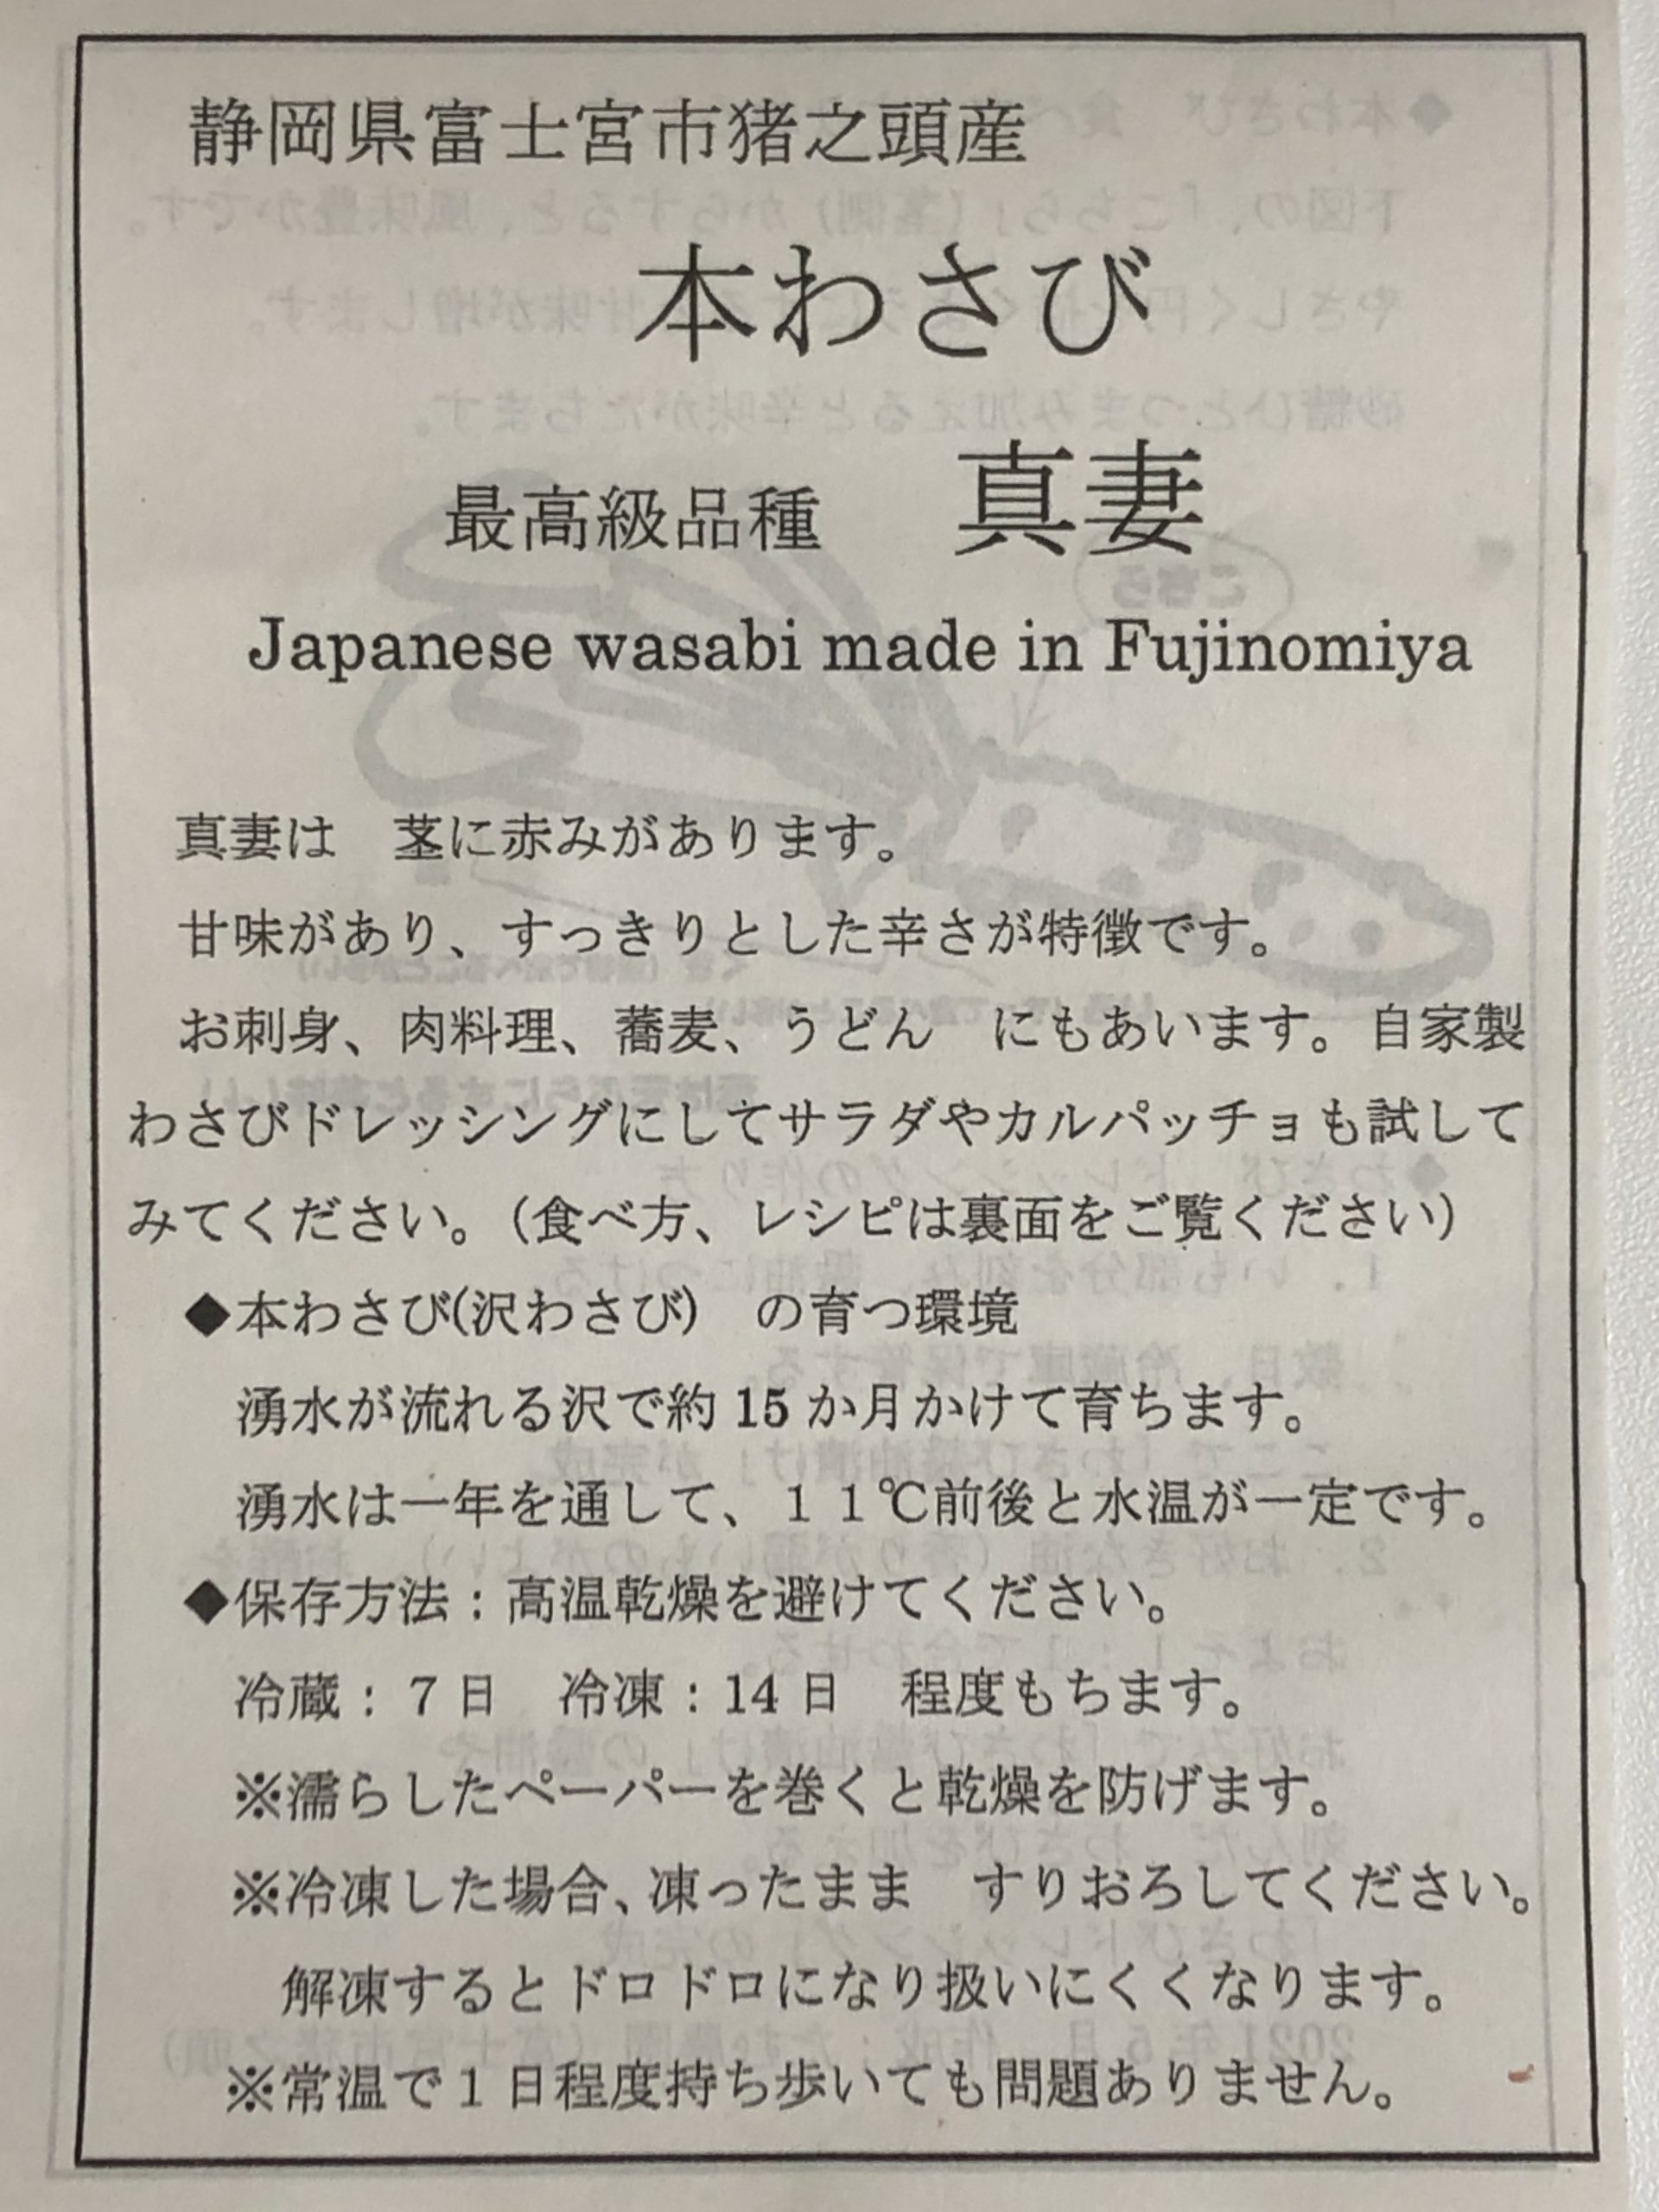 静岡県富士宮市猪之頭産
本わさび
最高級品種　真妻
Japanese wasabi made in Fujinomiya
真妻は　茎に赤みがあります。
甘味があり、すっきりとした辛さが特徴です。
お刺身、肉料理、蕎麦、うどん　にもあいます。自家製
わさびドレッシングにしてサラダやカルパッチョも試して
みてください。（食べ方、レシピは裏面をご覧ください）
◆本わさび(沢わさび)　の育つ環境
湧水が流れる沢で約 15 か月かけて育ちます。
湧水は一年を通して、１１℃前後と水温が一定です。
◆保存方法：高温乾燥を避けてください。
冷蔵：７日　冷凍：14 日　程度もちます。
※濡らしたペーパーを巻くと乾燥を防げます。
※冷凍した場合、凍ったまま　すりおろしてください。
解凍するとドロドロになり扱いにくくなります。
※常温で１日程度持ち歩いても問題ありません。